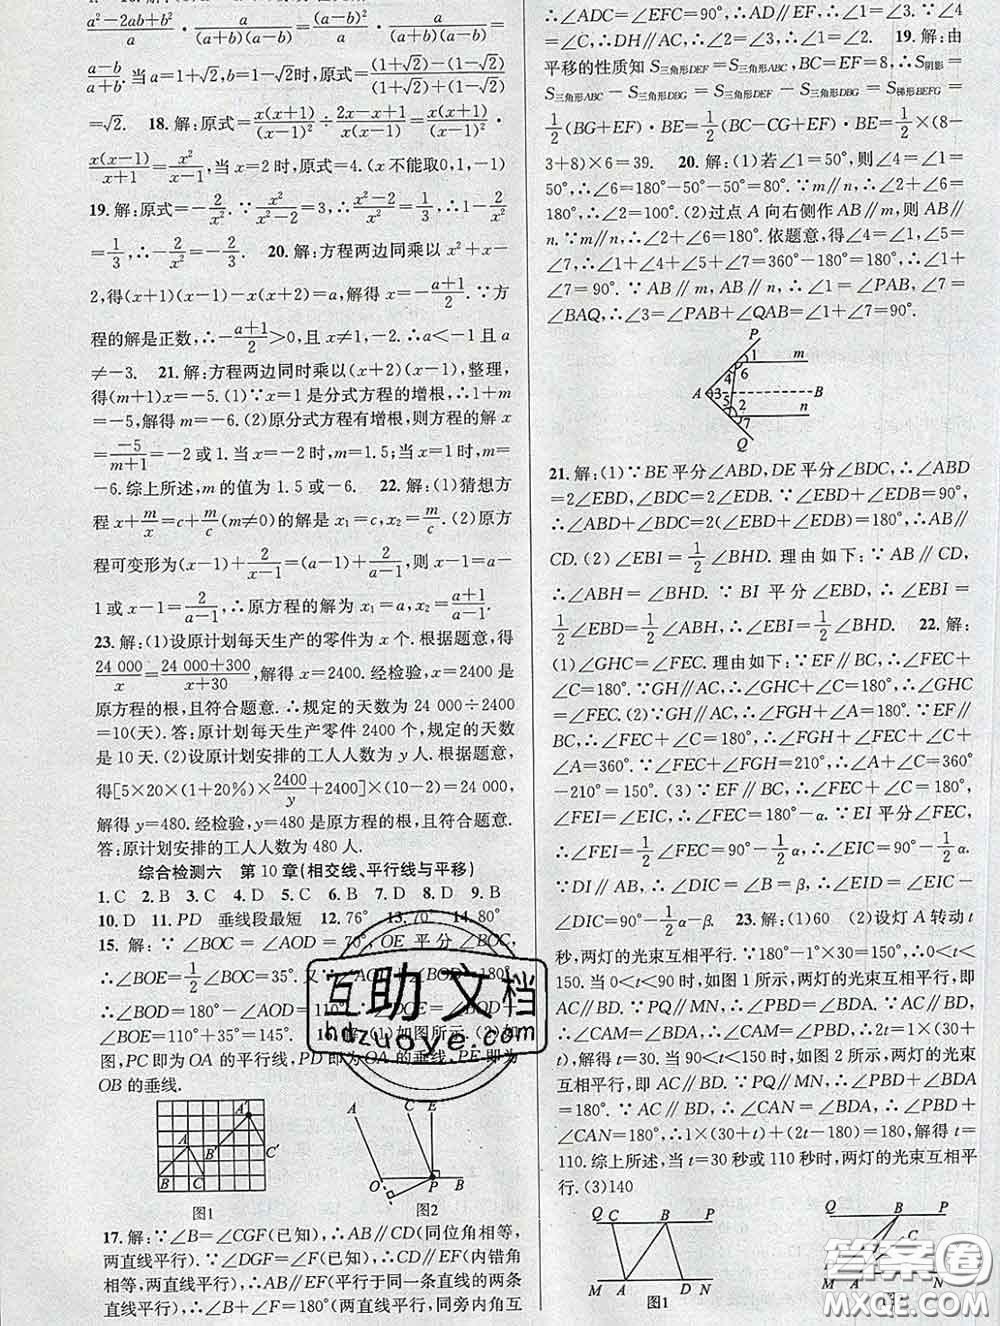 a²－2ab＋b²/a · a/(a＋b)(a－b) ＝ (a－b)²/a · a/(a＋b)(a－b) ＝
a－b/a＋b. 当 a＝1＋√2, b＝1－√2时, 原式＝(1＋√2)－(1－√2)/(1＋√2)＋(1－√2)
＝√2. 18. 解:原式＝x(x＋1)/(x－1)² ÷ 2x－x＋1/x(x－1) ＝ x(x＋1)/(x－1)² ·
x(x－1)/x＋1 ＝ x²/x－1, 当 x＝2 时, 原式＝4. (x 不能取0,1,－1)
19. 解:原式＝－2/x². ∵x²/x²－2＝3, ∴x²－2/x²＝1/3, ∴1－2/x²
＝1/3, ∴－2/x²＝－2/3. 20. 解:方程两边同乘以 x²＋x－
2, 得(x＋1)(x－1)－x(x＋2)＝a, 解得 x＝－a＋1/2. ∵方
程的解是正数, ∴－a＋1/2＞0, 且 x≠1,－2. ∴a＜－1 且 a
≠－3. 21. 解:方程两边同时乘以(x＋2)(x－1), 整理,
得(m＋1)x＝－5. (1)∵x＝1 是分式方程的增根, ∴1＋m
＝－5, 解得 m＝－6. (2)原分式方程有增根, 则方程的解 x
＝－5/m＋1＝－2或1. 当 x＝－2 时, m＝1.5; 当 x＝1时, m＝
－6. 综上所述, m 的值为 1.5 或－6. 22. 解:(1)猜想方
程 x＋m/x＝c＋m/c(m≠0)的解是 x₁＝c, x₂＝m/c. (2)原方
程可变形为(x－1)＋2/x－1＝(a－1)＋2/a－1, 则 x－1＝a－
1 或 x－1＝2/a－1, ∴原方程的解为 x₁＝a, x₂＝a＋1/a－1.
23. 解:(1)设原计划每天生产的零件为 x 个. 根据题意, 得
24 000/x＝24 000＋300/x＋30, 解得 x＝2400. 经检验, x＝2400 是
原方程的根, 且符合题意. ∴规定的天数为 24 000÷2400
＝10(天). 答:原计划每天生产零件 2400 个, 规定的天数
是 10 天. (2)设原计划安排的工人人数为 y 人. 根据题意,
得[5×20×(1＋20%)×2400/y＋2400]×(10－2)＝24000,
解得 y＝480. 经检验, y＝480 是原方程的根, 且符合题意.
答:原计划安排的工人人数为 480 人.
综合检测六 第 10 章(相交线、平行线与平移)
1. C 2. B 3. C 4. D 5. B 6. B 7. D 8. D 9. B
10. D 11. PD 垂线段最短 12. 76° 13. 70° 14. 80°
15. 解:∵∠BOC＝∠AOD＝70°, OE 平分∠BOC,
∴∠BOE＝1/2∠BOC＝35°. 又∵∠AOD＋∠BOD＝180°,
∴∠BOD＝180°－∠AOD＝110°
∠BOE＝110°＋35°＝145°. 16. 解:(1)如图所示. (2)如
图, PC 即为 OA 的平行线, PD 即为 OA 的垂线, PE 即为
OB 的垂线.
A A′ B C C′
图1
A C E O P B
图2
17. ∵∠B＝∠CGF(已知), ∴AB∥CD(同位角相等,
两直线平行). ∵∠DGF＝∠F(已知), ∴CD∥EF(内错角
相等, 两直线平行), ∴AB∥EF(平行于同一条直线的两条
直线平行), ∴∠B＋∠F＝180°(两直线平行, 同旁内角互
∴∠ADC＝∠EFC＝90°, ∴AD∥EF, ∴∠1＝∠3. ∵∠4
＝∠C, ∴DH∥AC, ∴∠2＝∠3, ∴∠1＝∠2. 19. 解:由
平移的性质知 S三角形DEF＝S三角形ABC, BC＝EF＝8, ∴S阴影
＝S三角形ABC－S三角形DBG＝S三角形DEF－S三角形DBG＝S梯形BEFG＝
1/2(BG＋EF)·BE＝1/2(BC－CG＋EF)·BE＝1/2×(8－
3＋8)×6＝39. 20. 解:(1)若∠1＝50°, 则∠4＝∠1＝
50°, ∴∠6＝180°－50°－50°＝80°. ∵m∥n, ∴∠2＋∠6＝
180°, ∴∠2＝100°. (2)过点 A 向右侧作 AB∥m, 则 AB∥
n. ∵m∥n, ∴∠2＋∠6＝180°. 依题意, 得∠4＝∠1, ∠5＝
∠7, ∴∠1＋∠4＋∠5＋∠7＝360°－180°＝180°, ∴∠1＋
∠7＝90°. ∵AB∥m, AB∥n, ∴∠1＝∠PAB, ∠7＝
∠BAQ, ∴∠3＝∠PAB＋∠QAB＝∠1＋∠7＝90°.
P 1 m 4 6 A 3 B 5 2 n 7 Q
21. 解:(1)∵BE 平分∠ABD, DE 平分∠BDC, ∴∠ABD
＝2∠EBD, ∠BDC＝2∠EDB. ∵∠EBD＋∠EDB＝90°,
∴∠ABD＋∠BDC＝2(∠EBD＋∠EDB)＝180°, ∴AB∥
CD. (2)∠EBI＝1/2∠BHD. 理由如下:∵AB∥CD,
∴∠ABH＝∠BHD. ∵BI 平分∠EBD, ∴∠EBI＝
1/2∠EBD＝1/2∠ABH, ∴∠EBI＝1/2∠BHD. 22. 解:
(1)∠GHC＝∠FEC. 理由如下:∵EF∥BC, ∴∠FEC＋
∠C＝180°. ∵GH∥AC, ∴∠GHC＋∠C＝180°, ∴∠GHC
＝∠FEC. (2)∵GH∥AC, ∴∠FGH＋∠A＝180°. ∵EF∥
BC, ∴∠FEC＋∠C＝180°, ∴∠FGH＋∠FEC＋∠C＋
∠A＝360°. ∵∠FEC＋∠FGH＝210°, ∴∠A＋∠C＝360°
－210°＝150°. (3)∵EF∥BC, ∴∠FEC＋∠C＝180°,
∠FEI＝∠EIC. ∵∠C＝α, ∴∠FEC＝180°－α. ∵EI 平分∠FEC,
∴∠FEI＝1/2∠FEC＝90°－1/2α, ∴∠DIE＝∠EIC－
∠DIC＝90°－1/2α－β. 23. 解:(1)60 (2)设灯 A 转动 t
秒, 两灯的光束互相平行. ∵180°－1°×30＝150°, ∴0＜t
＜150. 当 0＜t＜90 时, 如图 1 所示, 两灯的光束互相平行, 即
AC∥BD. ∵PQ∥MN, ∴∠PBD＝∠BDA. ∵AC∥
BD, ∴∠CAM＝∠BDA, ∴∠CAM＝∠PBD, ∴2t＝1×(30＋
t), 解得 t＝30. 当 90＜t＜150 时, 如图 2 所示, 两灯的光束
互相平行, 即 AC∥BD. ∵PQ∥MN, ∴∠PBD＋∠BDA
＝180°. ∵AC∥BD, ∴∠CAN＝∠BDA, ∴∠PBD＋
∠CAN＝180°, ∴1×(30＋t)＋(2t－180)＝180, 解得 t＝
110. 综上所述, 当 t＝30 秒或 110 秒时, 两灯的光束互相平
行. (3)140
Q C B P M A D N
图1
Q B P C M A
互助文档
hdzuoye.com
答案圈
MXQE.COM